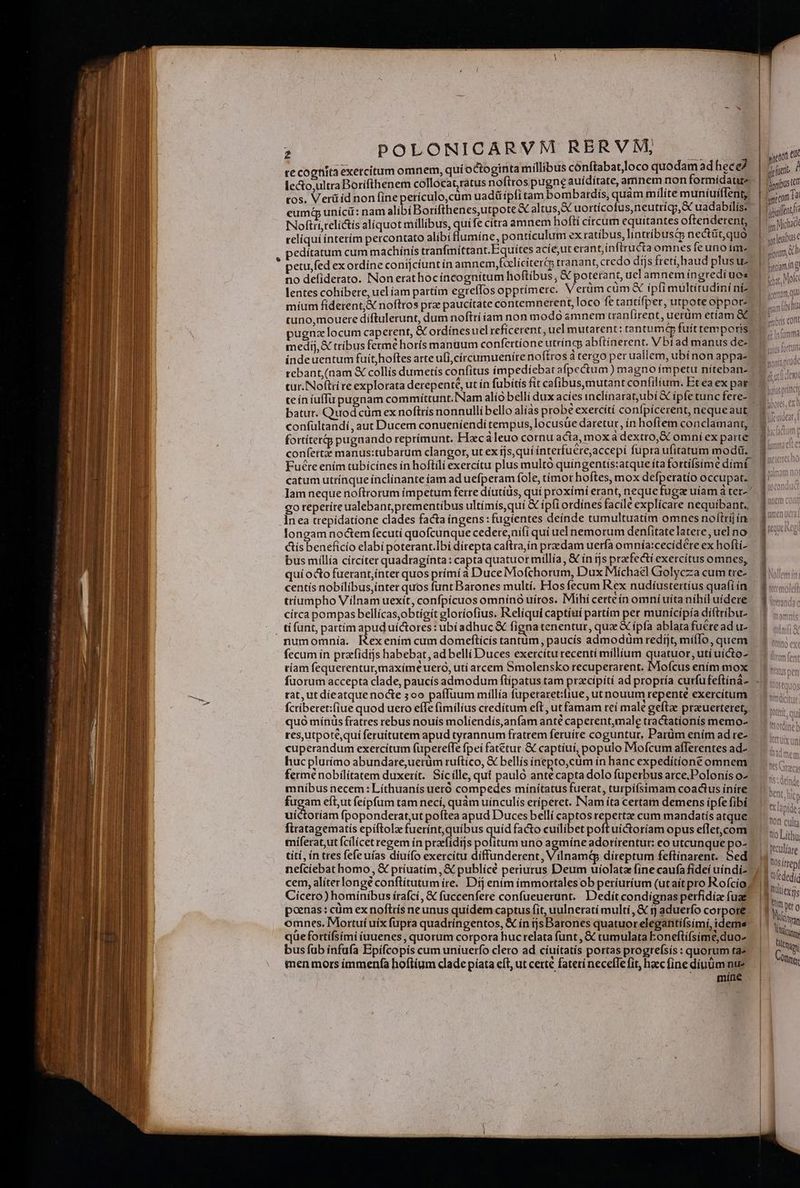 2 POLONICARVM RERVM,
recognita exercitum omnem, qui octoginta millibus constabat, loco quodam ad hec
lecto, ultra Boristhenem collocat, ratus nostros pugne auiditate, amnem non formidatu-
ros. Verũ id non sine periculo, cùm uadũ ipsi tam bombardis, quàm milite muniuissent,
eumq́; unicũ: nam alibi Boristhenes, utpote & altus, & uorticosus, neutriq;, & uadabilis.
Nostri, relictis aliquot millibus, qui se citra amnem hosti circum equitantes ostenderent,
reliqui interim percontato alibi flumine, ponticulum ex ratibus, lintribusq́; nectũt, quò
peditatum cum machinis transmittant. Equites acie, ut erant, instructa omnes se uno im-
petu, sed ex ordine conijciunt in amnem, fœliciterq́; tranant, credo dijs freti, haud plus u-
no desiderato. Non erat hoc incognitum hostibus, & poterant, uel amnem ingredi uos
lentes cohibere, uel iam partim egressos opprimere. Verùm cùm & ipsi multitudini ni-
mium fiderent, & nostros præ paucitate contemnerent, loco se tantisper, utpote oppor-
tuno, mouere distulerunt, dum nostri iam non modò amnem transirent, uerùm etiam &
pugnæ locum caperent, & ordines uel reficerent, uel mutarent: tantumq́; fuit temporis
medij, & tribus fermè horis manuum confertione utrinq; abstinerent. Vbi ad manus de-
inde uentum fuit, hostes arte usi, circumuenire nostros à tergo per uallem, ubi non appa-
rebant, (nam & collis dumetis consitus impediebat aspectum) magno impetu niteban-
tur. Nostri re explorata derepentè, ut in subitis fit casibus, mutant consilium. Et ea ex par
te in iussu pugnam committunt. Nam alio belli dux acies inclinarat, ubi & ipse tunc fere-
batur. Quod cùm ex nostris nonnulli bello aliàs probè exerciti conspicerent, neque aut
consultandi, aut Ducem conueniendi tempus, locusúe daretur, in hostem conclamant,
fortiterq́; pugnando reprimunt. Hæc à leuo cornu acta, mox à dextro, & omni ex parte
confertæ manus: tubarum clangor, ut ex ijs, qui interfuêre, accepi supra usitatum modũ.
Fuêre enim tubicines in hostili exercitu plus multò quingentis: atque ita fortissimè dimi
catum utrinque inclinante iam ad uesperam sole, timor hostes, mox desperatio occupat.
Iam neque nostrorum impetum ferre diutiùs, qui proximi erant, neque fugæ uiam à ter-
go reperire ualebant, prementibus ultimis, qui & ipsi ordines facilè explicare nequibant.
In ea trepidatione clades facta ingens: fugientes deinde tumultuatim omnes nostrij in
longam noctem secuti quoscunque cedere, nisi qui uel nemorum densitate latere, uel no
ctis beneficio elabi poterant. Ibi direpta castra, in prædam uersa omnia: cecidêre ex hosti-
bus millia circiter quadraginta: capta quatuor millia, & in ijs præfecti exercitus omnes,
qui octo fuerant, inter quos primi à Duce Moschorum, Dux Michaël Golycza cum tre-
centis nobilibus, inter quos sunt Barones multi. Hos secum Rex nudiustertius quasi in
triumpho Vilnam uexit, conspicuos omninò uiros. Mihi certè in omni uita nihil uidere
circa pompas bellicas, obtigit gloriosius. Reliqui captiui partim per municipia distribu-
ti sunt, partim apud uictores: ubi adhuc & signa tenentur, quæ & ipsa ablata fuêre ad u-
num omnia. Rex enim cum domesticis tantùm, paucis admodùm redijt, misso, quem
secum in præsidijs habebat, ad belli Duces exercitu recenti millium quatuor, uti uicto-
riam sequerentur, maximè uerò, uti arcem Smolensko recuperarent. Moscus enim mox
suorum accepta clade, paucis admodum stipatus tam præcipiti ad propria cursu festina-
rat, ut die atque nocte 300 passuum millia superaret: siue, ut nouum repentè exercitum
scriberet: siue quod uero esse similius creditum est, ut famam rei malè gestæ præuerteret,
quò minùs fratres rebus nouis moliendis, ansam antè caperent, malę tractationis memo-
res, utpotè, qui seruitutem apud tyrannum fratrem seruire coguntur. Parùm enim ad re-
cuperandum exercitum superesse spei fatẽtur & captiui, populo Moscum asserentes ad-
huc plurimo abundare, uerùm rustico, & bellis inepto, cùm in hanc expeditionẽ omnem
fermè nobilitatem duxerit. Sic ille, qui paulò antè capta dolo superbus arce, Polonis o-
mnibus necem: Lithuanis uerò compedes minitatus fuerat, turpissimam coactus inire
fugam est, ut seipsum tam neci, quàm uinculis eriperet. Nam ita certam demens ipse sibi
uictoriam spoponderat, ut postea apud Duces belli captos repertæ cum mandatis atque
stratagematis epistolæ fuerint, quibus quid facto cuilibet post uictoriam opus esset, com
miserat, ut scilicet regem in præsidijs politum uno agmine adorirentur: eo utcunque po-
titi, in tres sese uias diuiso exercitu diffunderent, Vilnamq́; direptum festinarent. Sed
nesciebat homo, & priuatim, & publicè periurus Deum uiolatæ sine causa fidei uindi-
cem, aliter longè constitutum ire. Dij enim immortales ob periurium (ut ait pro Roscio
Cicero) hominibus irasci, & succensere consueuerunt. Dedit condignas perfidiæ suæ
pœnas: cùm ex nostris ne unus quidem captus sit, uulnerati multi, & ij aduerso corpore
omnes. Mortui uix supra quadringentos, & in ijs Barones quatuor elegantissimi, idem-
qúe fortissimi iuuenes, quorum corpora huc relata sunt, & tumulata honestissimè, duo-
bus sub insula Episcopis cum uniuerso clero ad ciuitatis portas progressis: quorum ta-
men mors immensa hostium clade piata est, ut certè fateri necesse sit, hæc sine diuũm nu-
mine